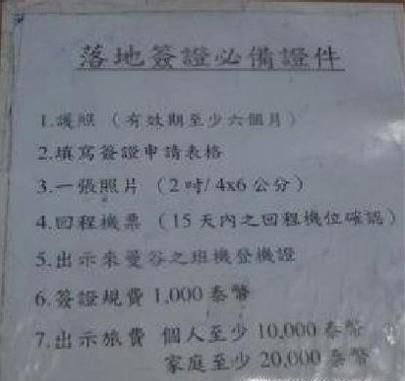 落地簽證必備證件
1.護照 （有效期至少六個月）
2.填寫簽證申請表格
3.一張照片 （2吋/ 4x6公分）
4.回程機票 （15天內之回程機位確認）
5.出示來曼谷之班機登機證
6.簽證規費 1,000 泰幣
7.出示旅費 個人至少 10,000 泰幣
家庭至少 20,000 泰幣